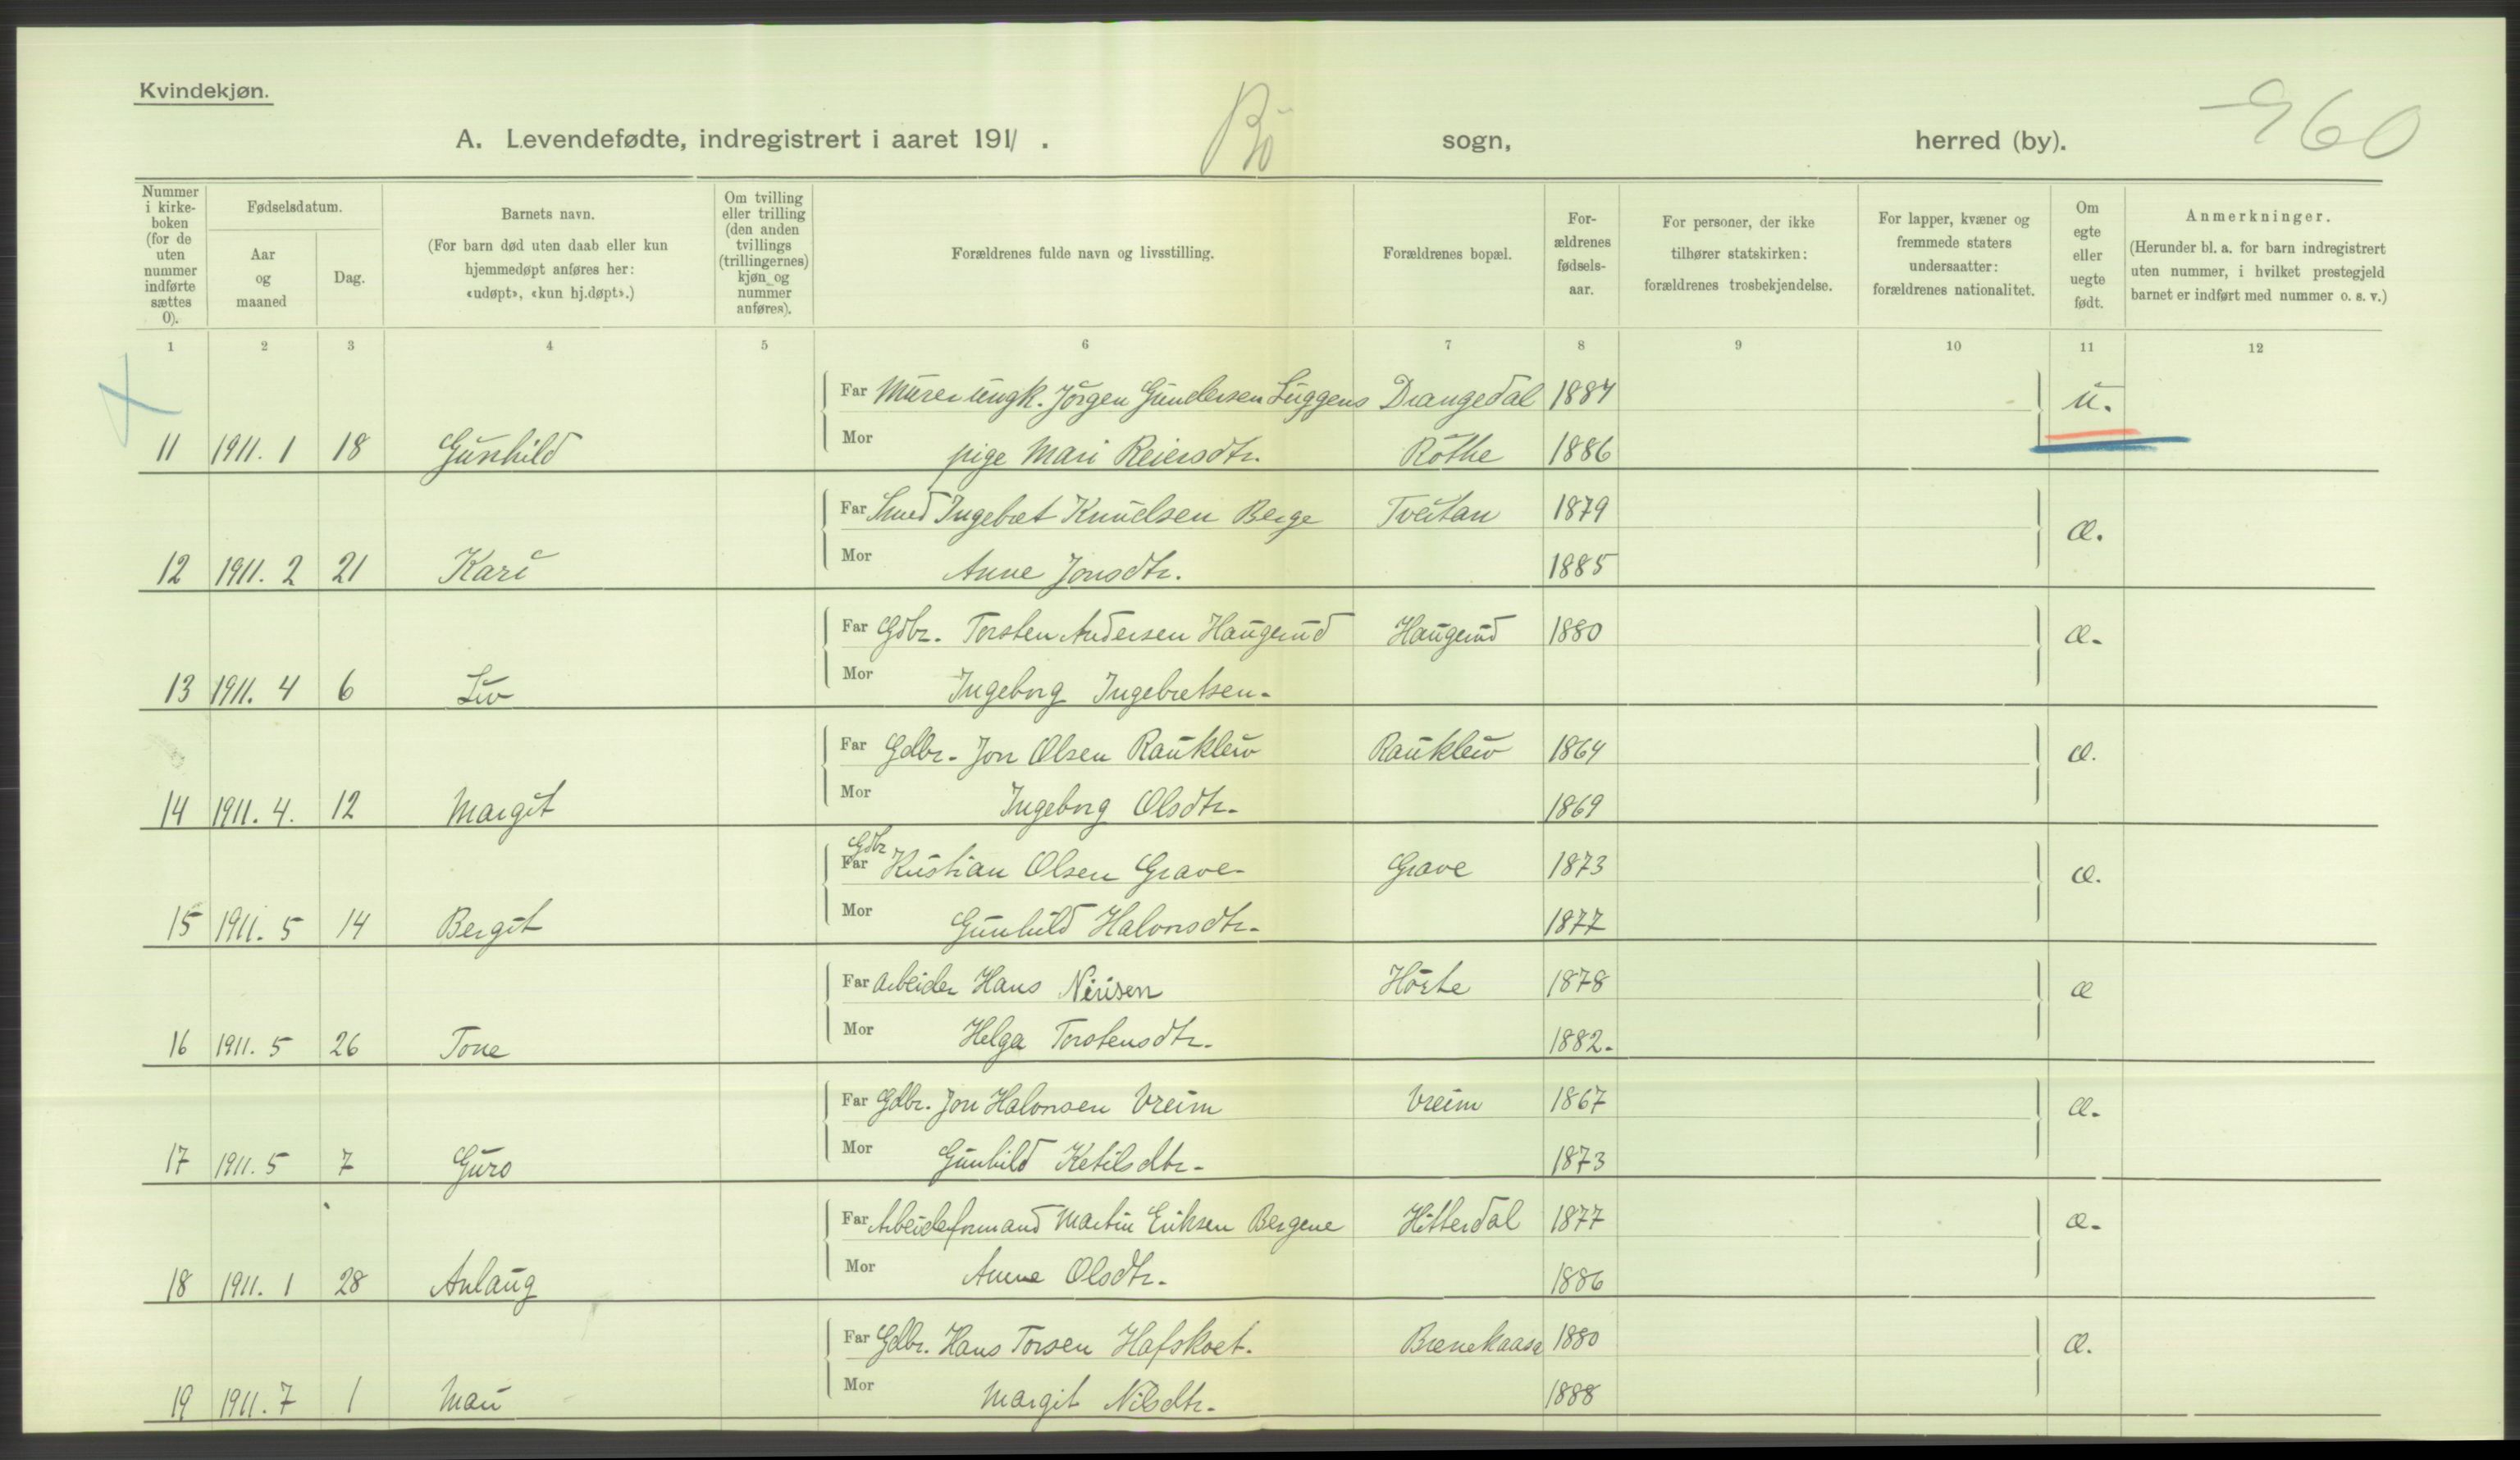 Kvindekjøn.
960
A. Levendefødte, indregistrert i aaret 1911. Bö sogn, herred (by).
Nummer i kirke-boken (for de uten nummer indførte sættes 0).
Fødselsdatum.
Aar og maaned
Dag.
Barnets navn.
(For barn død uten daab eller kun hjemmedøpt anføres her: «udøpt», «kun hj.døpt».)
Om tvilling eller trilling (den anden tvillings (trillingernes) kjøn og nummer anføres).
Forældrenes fulde navn og livsstilling.
Forældrenes bopæl.
For-ældrenes fødsels-aar.
For personer, der ikke tilhører statskirken: forældrenes trosbekjendelse.
For lapper, kvæner og fremmede staters undersaatter: forældrenes nationalitet.
Om egte eller uegte født.
Anmerkninger.
(Herunder bl. a. for barn indregistrert uten nummer, i hvilket prestegjeld barnet er indført med nummer o. s. v.)
1 2 3 4 5 6 7 8 9 10 11 12
Far Murer ungk. Jörgen Gundersen Luggens Drangedal 1884 u.
11 1911. 1 18 Gunhild Mor pige Mari Reiersdtr. Röthe 1886
Far Smed Ingebret Knudsen Berge Tveitan 1879 æ.
12 1911. 2 21 Kari Mor Anne Jonsdtr. 1885
Far Gdbr. Torsten Andersen Haugerud Haugerud 1880 æ.
13 1911. 4 6 Liv Mor Ingeborg Ingebretsen.
Far Gdbr. Jon Olsen Raukleiv Raukleiv 1864 æ.
14 1911. 4. 12 Margit Mor Ingeborg Olsdtr. 1869
Far Gdbr Kristian Olsen Grave. Grave 1873 æ.
15 1911. 5 14 Bergit Mor Gunhild Halvorsdtr. 1877
Far Arbeider Hans Nirisen Hörte 1878 æ
16 1911. 5 26 Tone Mor Helga Torstensdtr. 1882.
Far Gdbr. Jon Halvorsen Vreim Vreim 1867 æ.
17 1911. 5 7 Guro Mor Gunhild Ketilsdtr. 1873
Far Arbeidsformand Martin Eriksen Bergene Hitterdal 1877 æ.
18 1911. 1 28 Anlaug Mor Anne Olsdtr. 1886
Far Gdbr. Hans Torsen Hafskoet. Brenekaasa 1880 æ.
19 1911. 7 1 Mari Mor Margit Nilsdtr. 1888